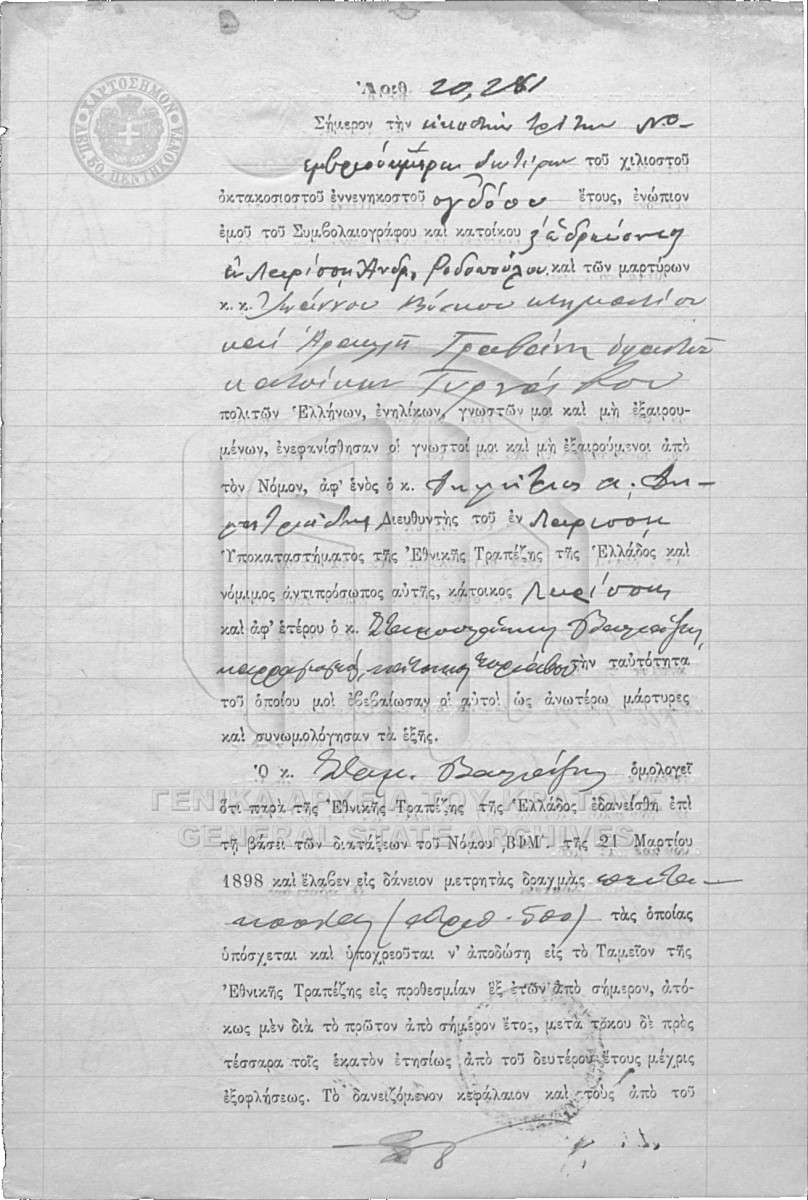 ΧΑΡΤΟΣΗΜΟΝ
ΛΕΠΤ. 50. ΠΕΝΤΗΚΟΝΤΑ
Ἀριθ. 20,281
Σήμερον τὴν εἰκοστὴν τρίτην Νο-
εμβρίου ἡμέραν Δευτέραν τοῦ χιλιοστοῦ
ὀκτακοσιοστοῦ ἐννενηκοστοῦ ὀγδόου ἔτους, ἐνώπιον
ἐμοῦ τοῦ Συμβολαιογράφου καὶ κατοίκου
ἐν Λαρίσσῃ Ἀνδρ. Ροδοπούλου καὶ τῶν μαρτύρων
κ. κ. Ἰωάννου κτηματίου
καὶ
κατοίκων Τυρνάβου
πολιτῶν Ἑλλήνων, ἐνηλίκων, γνωστῶν μοι καὶ μὴ ἐξαιρου-
μένων, ἐνεφανίσθησαν οἱ γνωστοί μοι καὶ μὴ ἐξαιρούμενοι ἀπὸ
τὸν Νόμον, ἀφ' ἑνὸς ὁ κ. Δημήτριος Δη-
μητριάδης Διευθυντὴς τοῦ ἐν Λαρίσσῃ
Ὑποκαταστήματος τῆς Ἐθνικῆς Τραπέζης τῆς Ἑλλάδος καὶ
νόμιμος ἀντιπρόσωπος αὐτῆς, κάτοικος Λαρίσσης
καὶ ἀφ' ἑτέρου ὁ κ.
κάτοικος Τυρνάβου τὴν ταὐτότητα
τοῦ ὁποίου μοὶ ἐβεβαίωσαν οἱ αὐτοὶ ὡς ἀνωτέρω μάρτυρες
καὶ συνωμολόγησαν τὰ ἑξῆς.
Ὁ κ. Σταμ. ὁμολογεῖ
ΓΕΝΙΚΑ ΑΡΧΕΙΑ ΤΟΥ ΚΡΑΤΟΥΣ
ὅτι παρὰ τῆς Ἐθνικῆς Τραπέζης τῆς Ἑλλάδος ἐδανείσθη ἐπὶ
GENERAL STATE ARCHIVES
τῇ βάσει τῶν διατάξεων τοῦ Νόμου ͵ΒΦΜ΄. τῆς 21 Μαρτίου
1898 καὶ ἔλαβεν εἰς δάνειον μετρητὰς δραχμὰς πεντα-
κοσίας (ἀριθ. 500) τὰς ὁποίας
ὑπόσχεται καὶ ὑποχρεοῦται ν' ἀποδώσῃ εἰς τὸ Ταμεῖον τῆς
Ἐθνικῆς Τραπέζης εἰς προθεσμίαν ἓξ ἐτῶν ἀπὸ σήμερον, ἀτό-
κως μὲν διὰ τὸ πρῶτον ἀπὸ σήμερον ἔτος, μετὰ τόκου δὲ πρὸς
τέσσαρα τοῖς ἑκατὸν ἐτησίως ἀπὸ τοῦ δευτέρου ἔτους μέχρις
ἐξοφλήσεως. Τὸ δανειζόμενον κεφάλαιον καὶ τοὺς ἀπὸ τοῦ